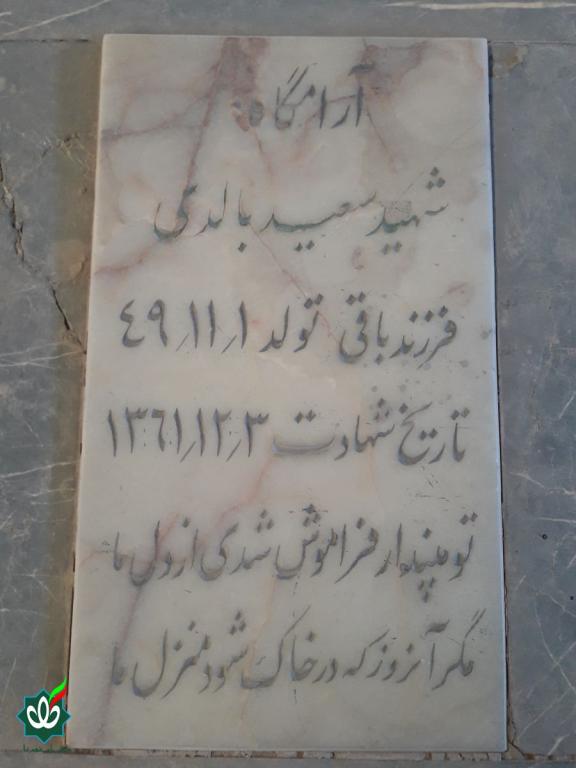 آرامگاه:
شهید سعید بالدی
فرزند باقی تولد ۱ر۱۱ر٤۹
تاریخ شهادت ۳ر۱۲ر۱۳٦۱
تو مپندار فراموش شدی از دل ما
مگر آنروز که در خاک شود منزل ما